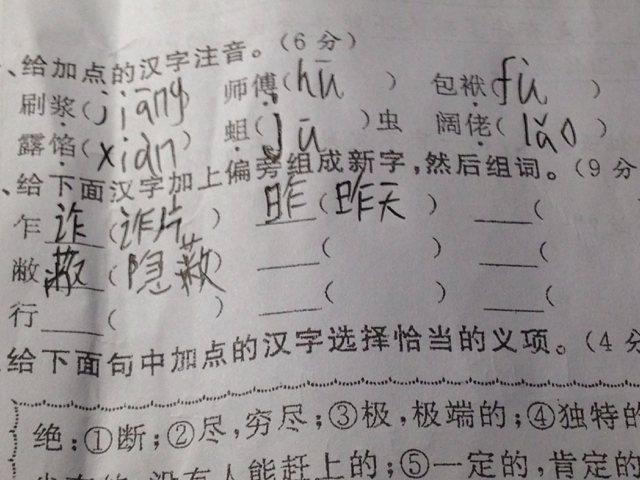 、给加点的汉字注音。(6 分)
刷浆(jiāng) 师傅(hū ) 包袱(fù )
露馅(xiàn) 蛆(jū )虫 阔佬(lǎo )
、给下面汉字加上偏旁组成新字,然后组词。(9 分
乍 诈 (诈片 ) 昨 (昨天 ) ____(
敝 蔽 (隐蔽 ) ____( ) ____(
行____( ) ____( ) ____(
给下面句中加点的汉字选择恰当的义项。(4 分
绝:①断;②尽,穷尽;③极,极端的;④独特的
没有人能赶上的;⑤一定的,肯定的